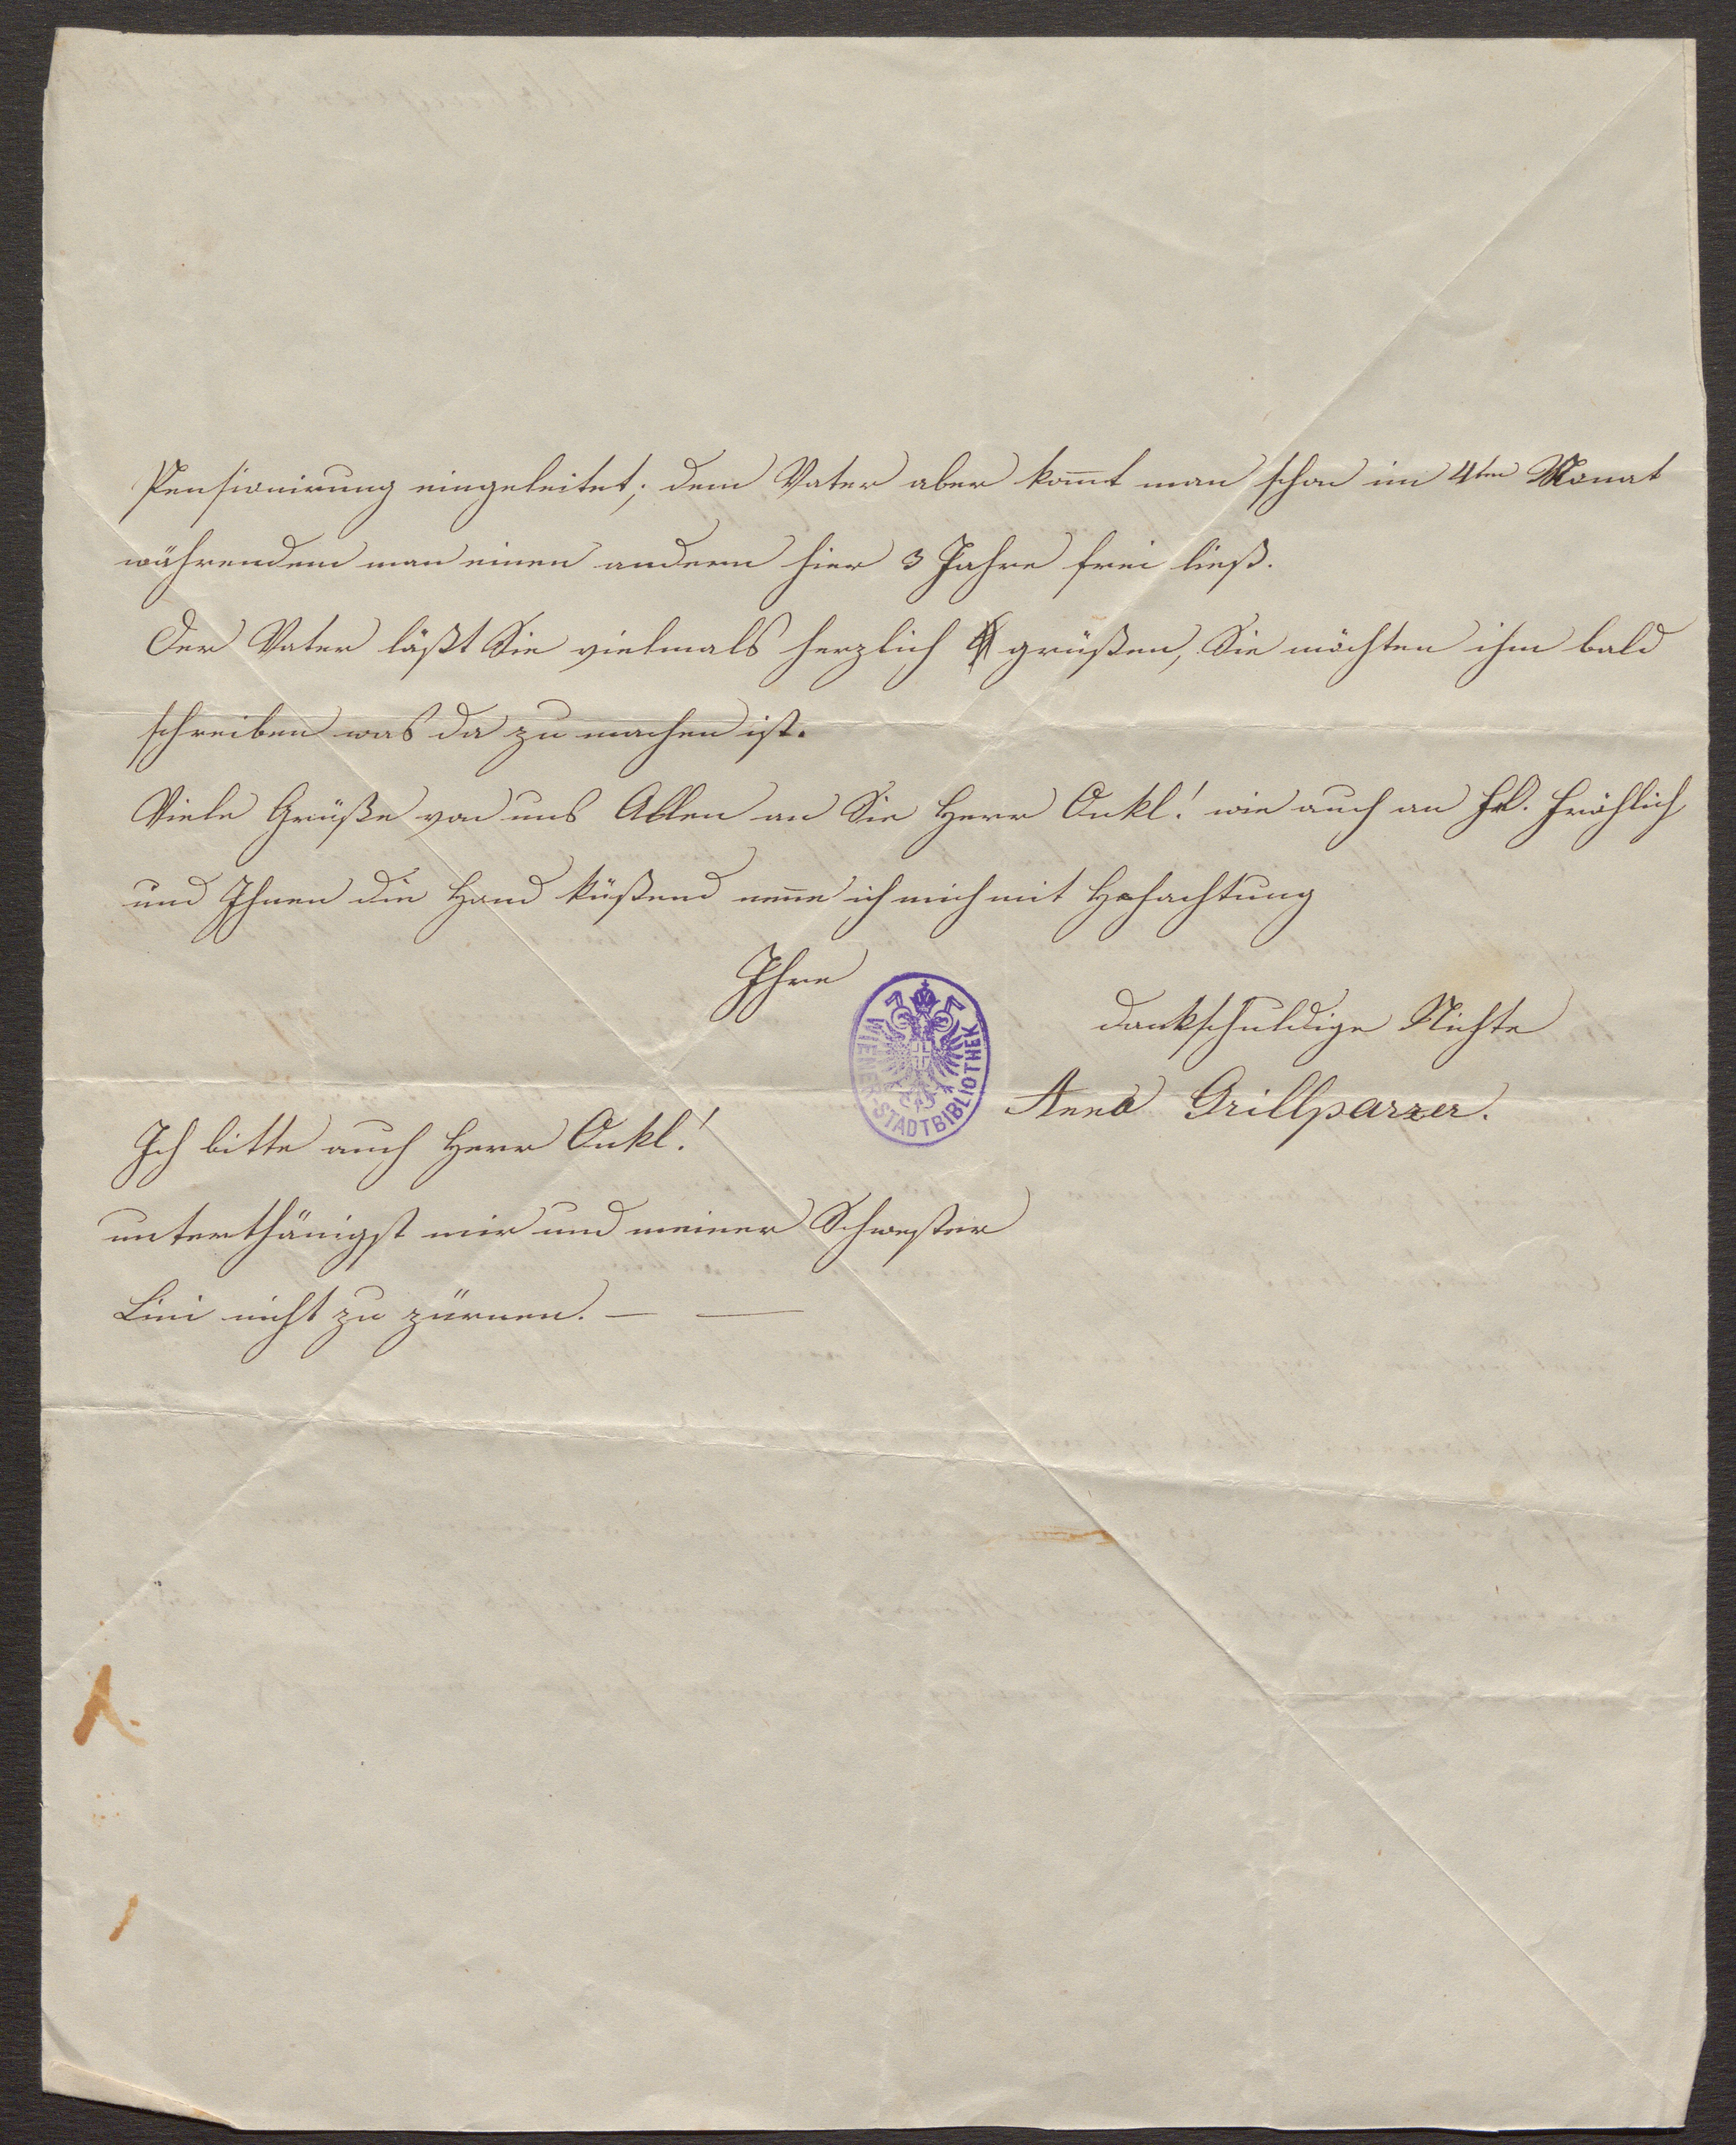 Pensionirung eingeleitet; dem Vater aber kom̄t man schon im 4ten Monat
währendem man einen andern hier 3 Jahre frei ließ.
Der Vater läßt Sie vielmals herzlich grüßen, Sie möchten ihm bald
schreiben was da zu machen ist.
Viele Grüße von uns Allen an Sie Herr Onkl! wie auch an Frl. Fröhlich
und Ihnen die Hand küßend nen̄e ich mich mit Hochachtung
Ihre
dankschuldige Nichte
Anna Grillparzer.
WIENER-STADTBIBLIOTHEK
Ich bitte auch Herr Onkl!
unterthänigst mir und meiner Schwester
Lini nicht zu zürnen. — —